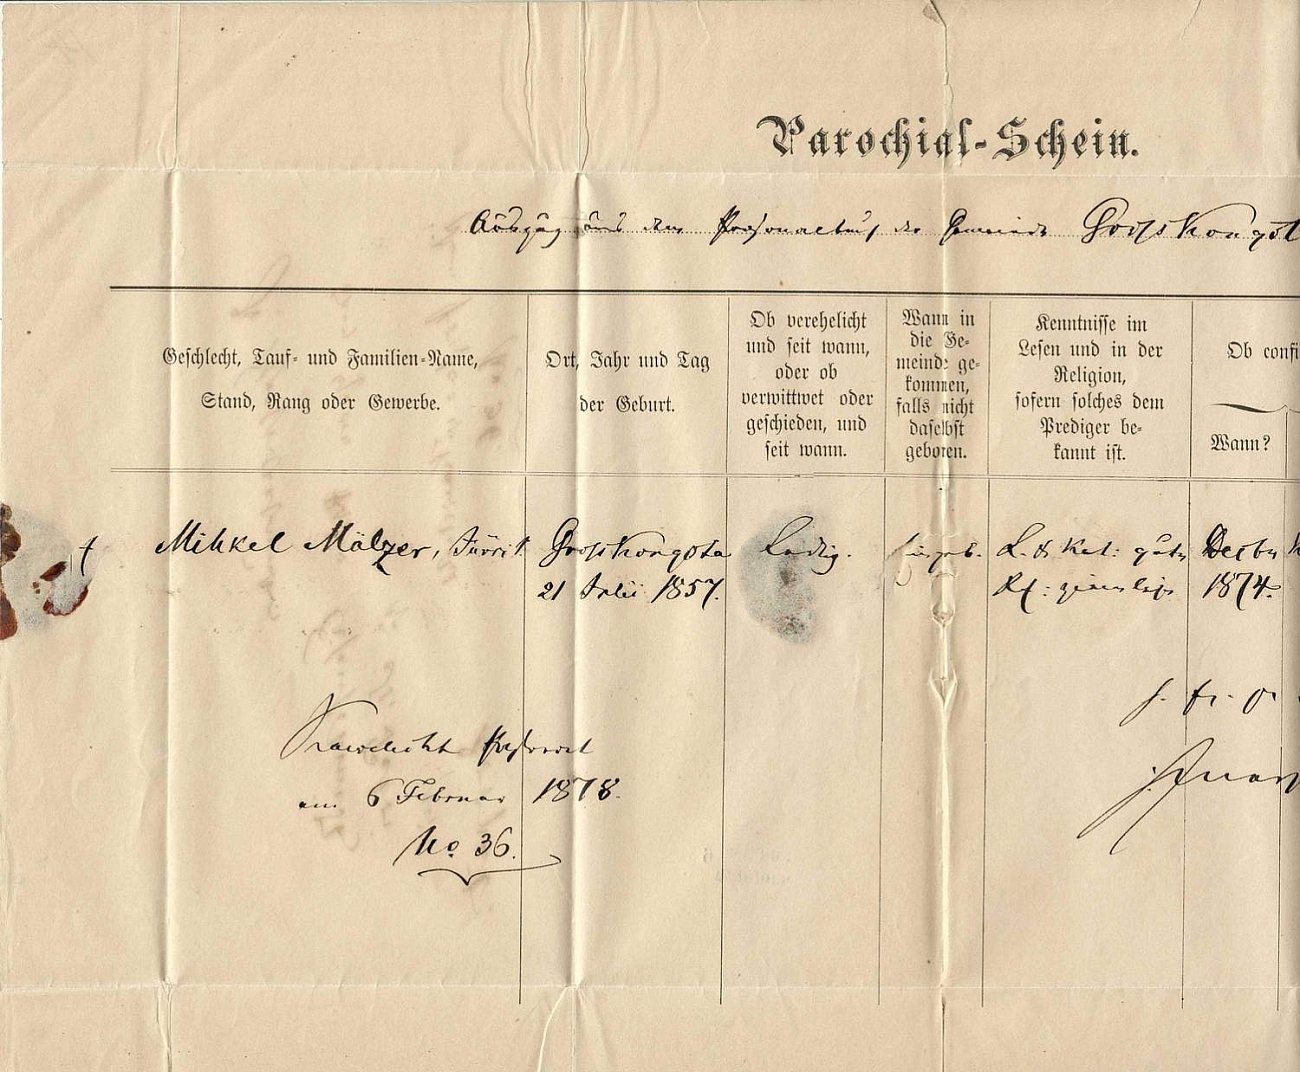 Parochial-Schein.
Auszug aus dem Personalbuch der Gemeinde Grosskongot
Geschlecht, Tauf- und Familien-Name,
Stand, Rang oder Gewerbe.
Ort, Jahr und Tag
der Geburt.
Ob verehelicht
und seit wann,
oder ob
verwittwet oder
geschieden, und
seit wann.
Wann in
die Ge-
meinde ge-
kommen,
falls nicht
daselbst
geboren.
Kenntnisse im
Lesen und in der
Religion,
sofern solches dem
Prediger be-
kannt ist.
Ob confi
Wann?
Mihkel Mälzer, Grosskongota Ledig. eingeb. L. & Kat: gut, Decbr
21 Julii 1857. 1874.
Kawelecht Pastorat
am 6 Februar 1878.
No 36.